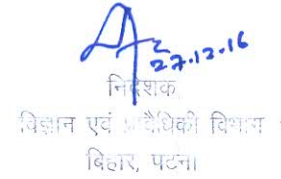 27.12.16
निदेशक
विज्ञान एवं प्रावैधिकी विभाग
बिहार, पटना